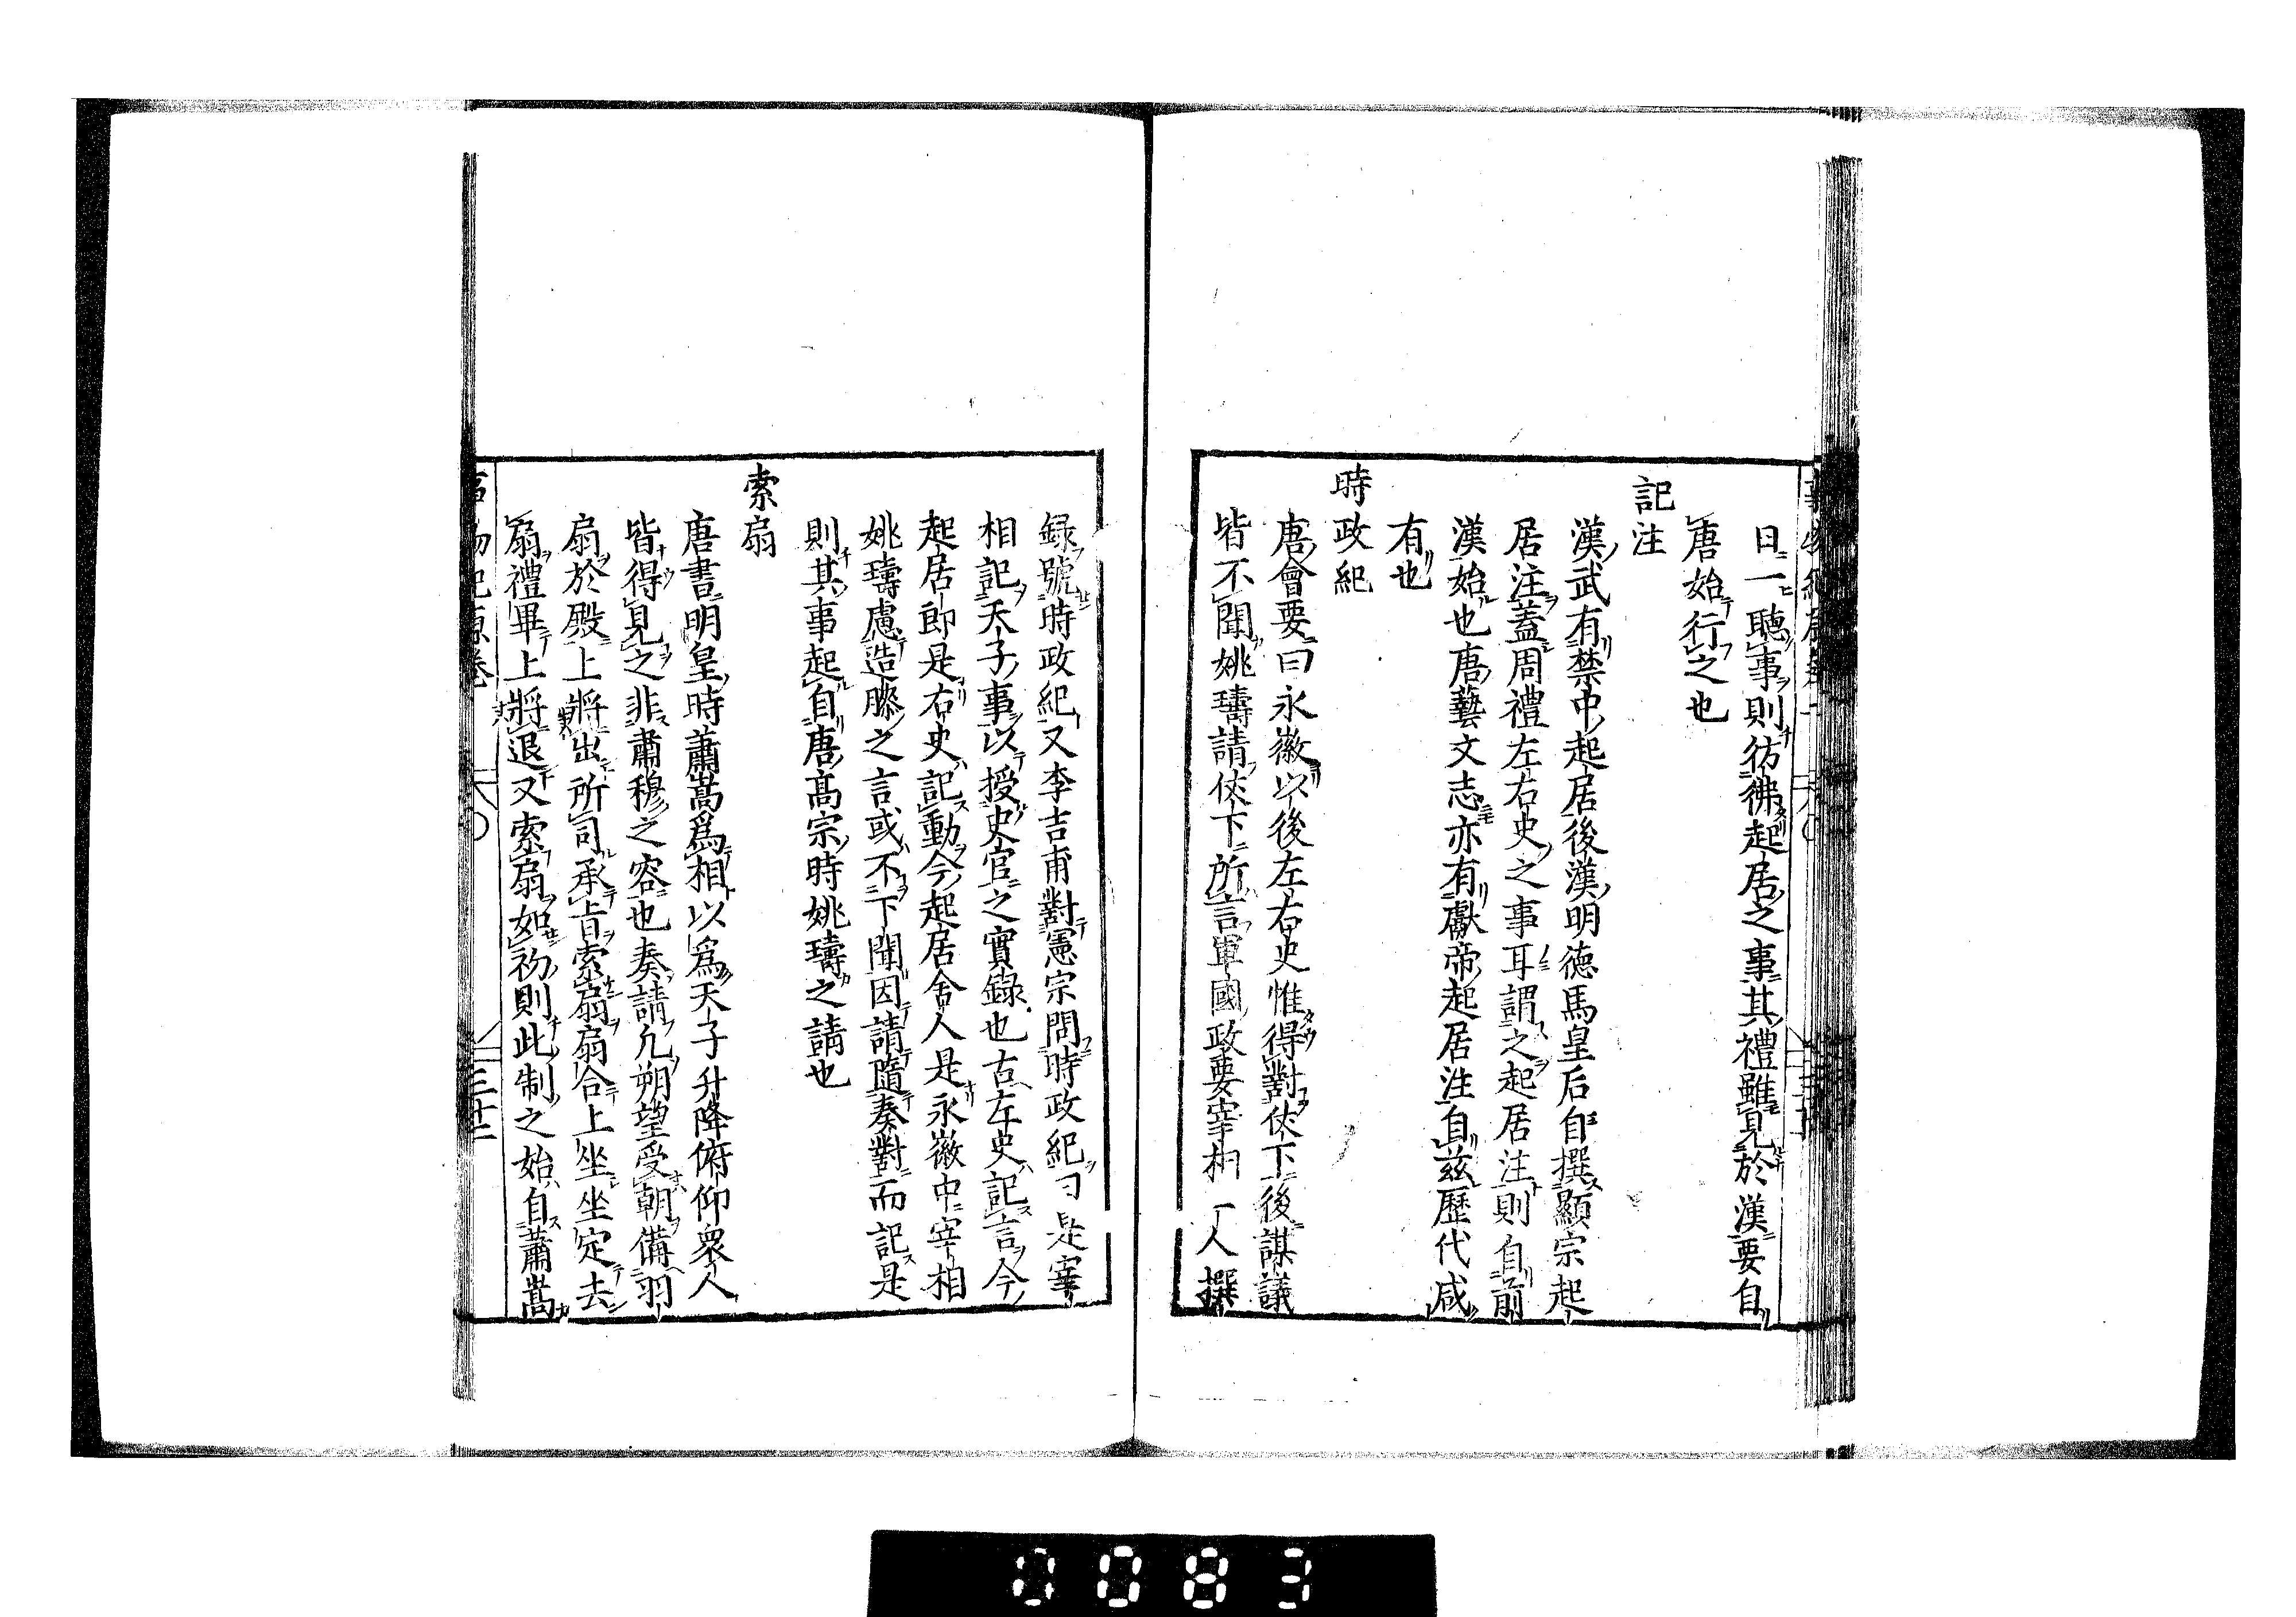 日一聽事則彷彿起居之事其禮雖見於漢要自
唐始行之也
記注
漢武有禁中起居後漢明德馬皇后自撰顯宗起
居注蓋周禮左右史之事耳謂之起居注則自前
漢始也唐藝文志亦有獻帝起居注自茲歷代咸
有也
時政紀
唐會要曰永徽以後左右史惟得對仗下後謀議
皆不聞姚璹請仗下所言軍國政要宰相一人撰
録號時政紀又李吉甫對憲宗問時政紀曰是宰
相記天子事以授史官之實録也古左史記言今
起居郎是右史記動今起居舍人是永徽中宰相
姚璹慮造膝之言或不下聞因請隨奏對而記是
則其事起自唐高宗時姚璹之請也
索扇
唐書明皇時蕭嵩爲相以爲天子升降俯仰衆人
皆得見之非肅穆之容也奏請凡朔望受朝備羽
扇於殿上將出所司承旨索扇扇合上坐坐定去
扇禮畢上將退又索扇如初則此制之始自蕭嵩
事物紀原卷
0083